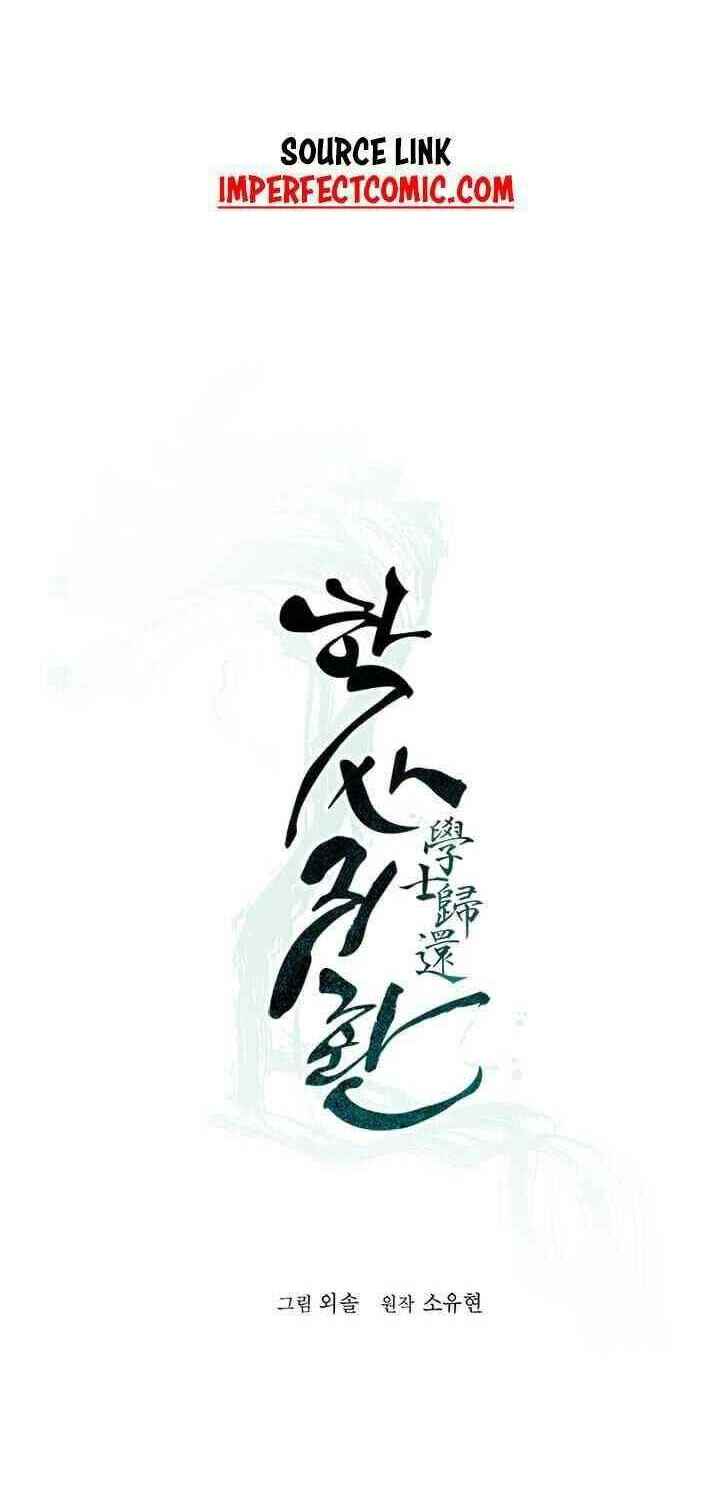 SOURCE LINK
IMPERFECTCOMIC.COM
학사귀환
學士歸還
그림 외솔 원작 소유현